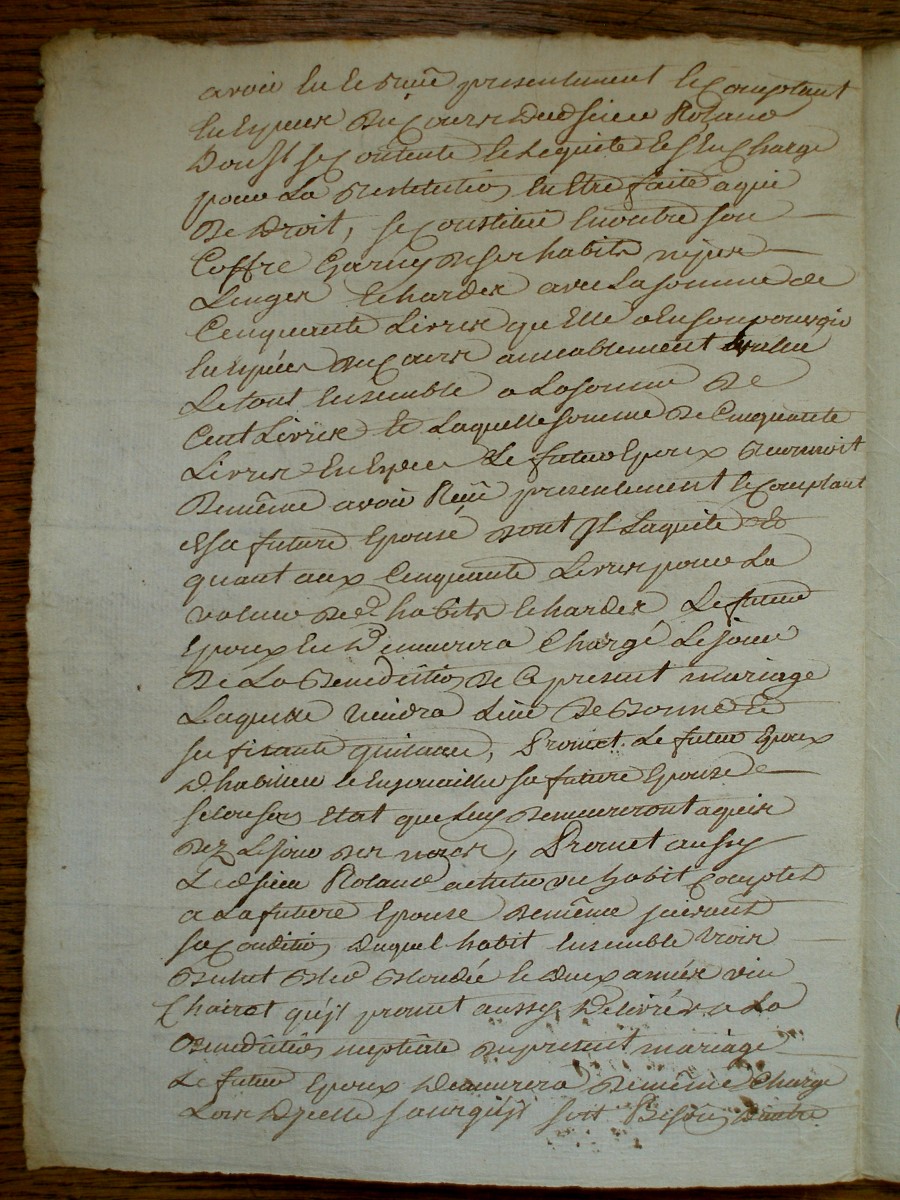 avoir eu et Reçu presentement le Comptant
En Especes Du Cours Dud sieur Roland
Dont Il se Contente le Lequitte et s'En Charge
pour La Restitution En Etre faite a qui
De Droit, se Constitue En outre son
Coffre Garny De ses habits
Linges et hardes avec La somme de
Cinquante Livres qu'Elle a En son pouvoir
En Espèces Du Cours amiablement Evalué
Le tout Ensemble a La somme De
Cent Livres Et Laquelle somme De Cinquante
Livres En Especes Le futur Epoux Reconnoit
De même avoir Reçu presentement le Comptant
de sa future Epouse dont Il Laquite Et
quant aux Cinquante Livres pour La
valeur desd habits et hardes Le futur
Epoux En Demeurera Chargé Le jour
De La Benediction De Ce present mariage
Laquelle viendra Lieu De Bonne Et
suffisante quitance, Promet Le futur Epoux
D'habiller et Enjouailler sa future Epouse
selon son Etat que Luy Demeureront aquis
Dez Le jour des noces, Promet aussy
Led sieur Roland acheter un habit Complet
a La future Epouse De même suivant
sa Condition Duquel habit Ensemble
et Deux
qu'il promet aussy Délivrer a La
Benediction nuptiale Du present mariage
Le futur Epoux Demeurera De même Charge
Lors D'Icelle sans qu'il soit Besoin D'autre